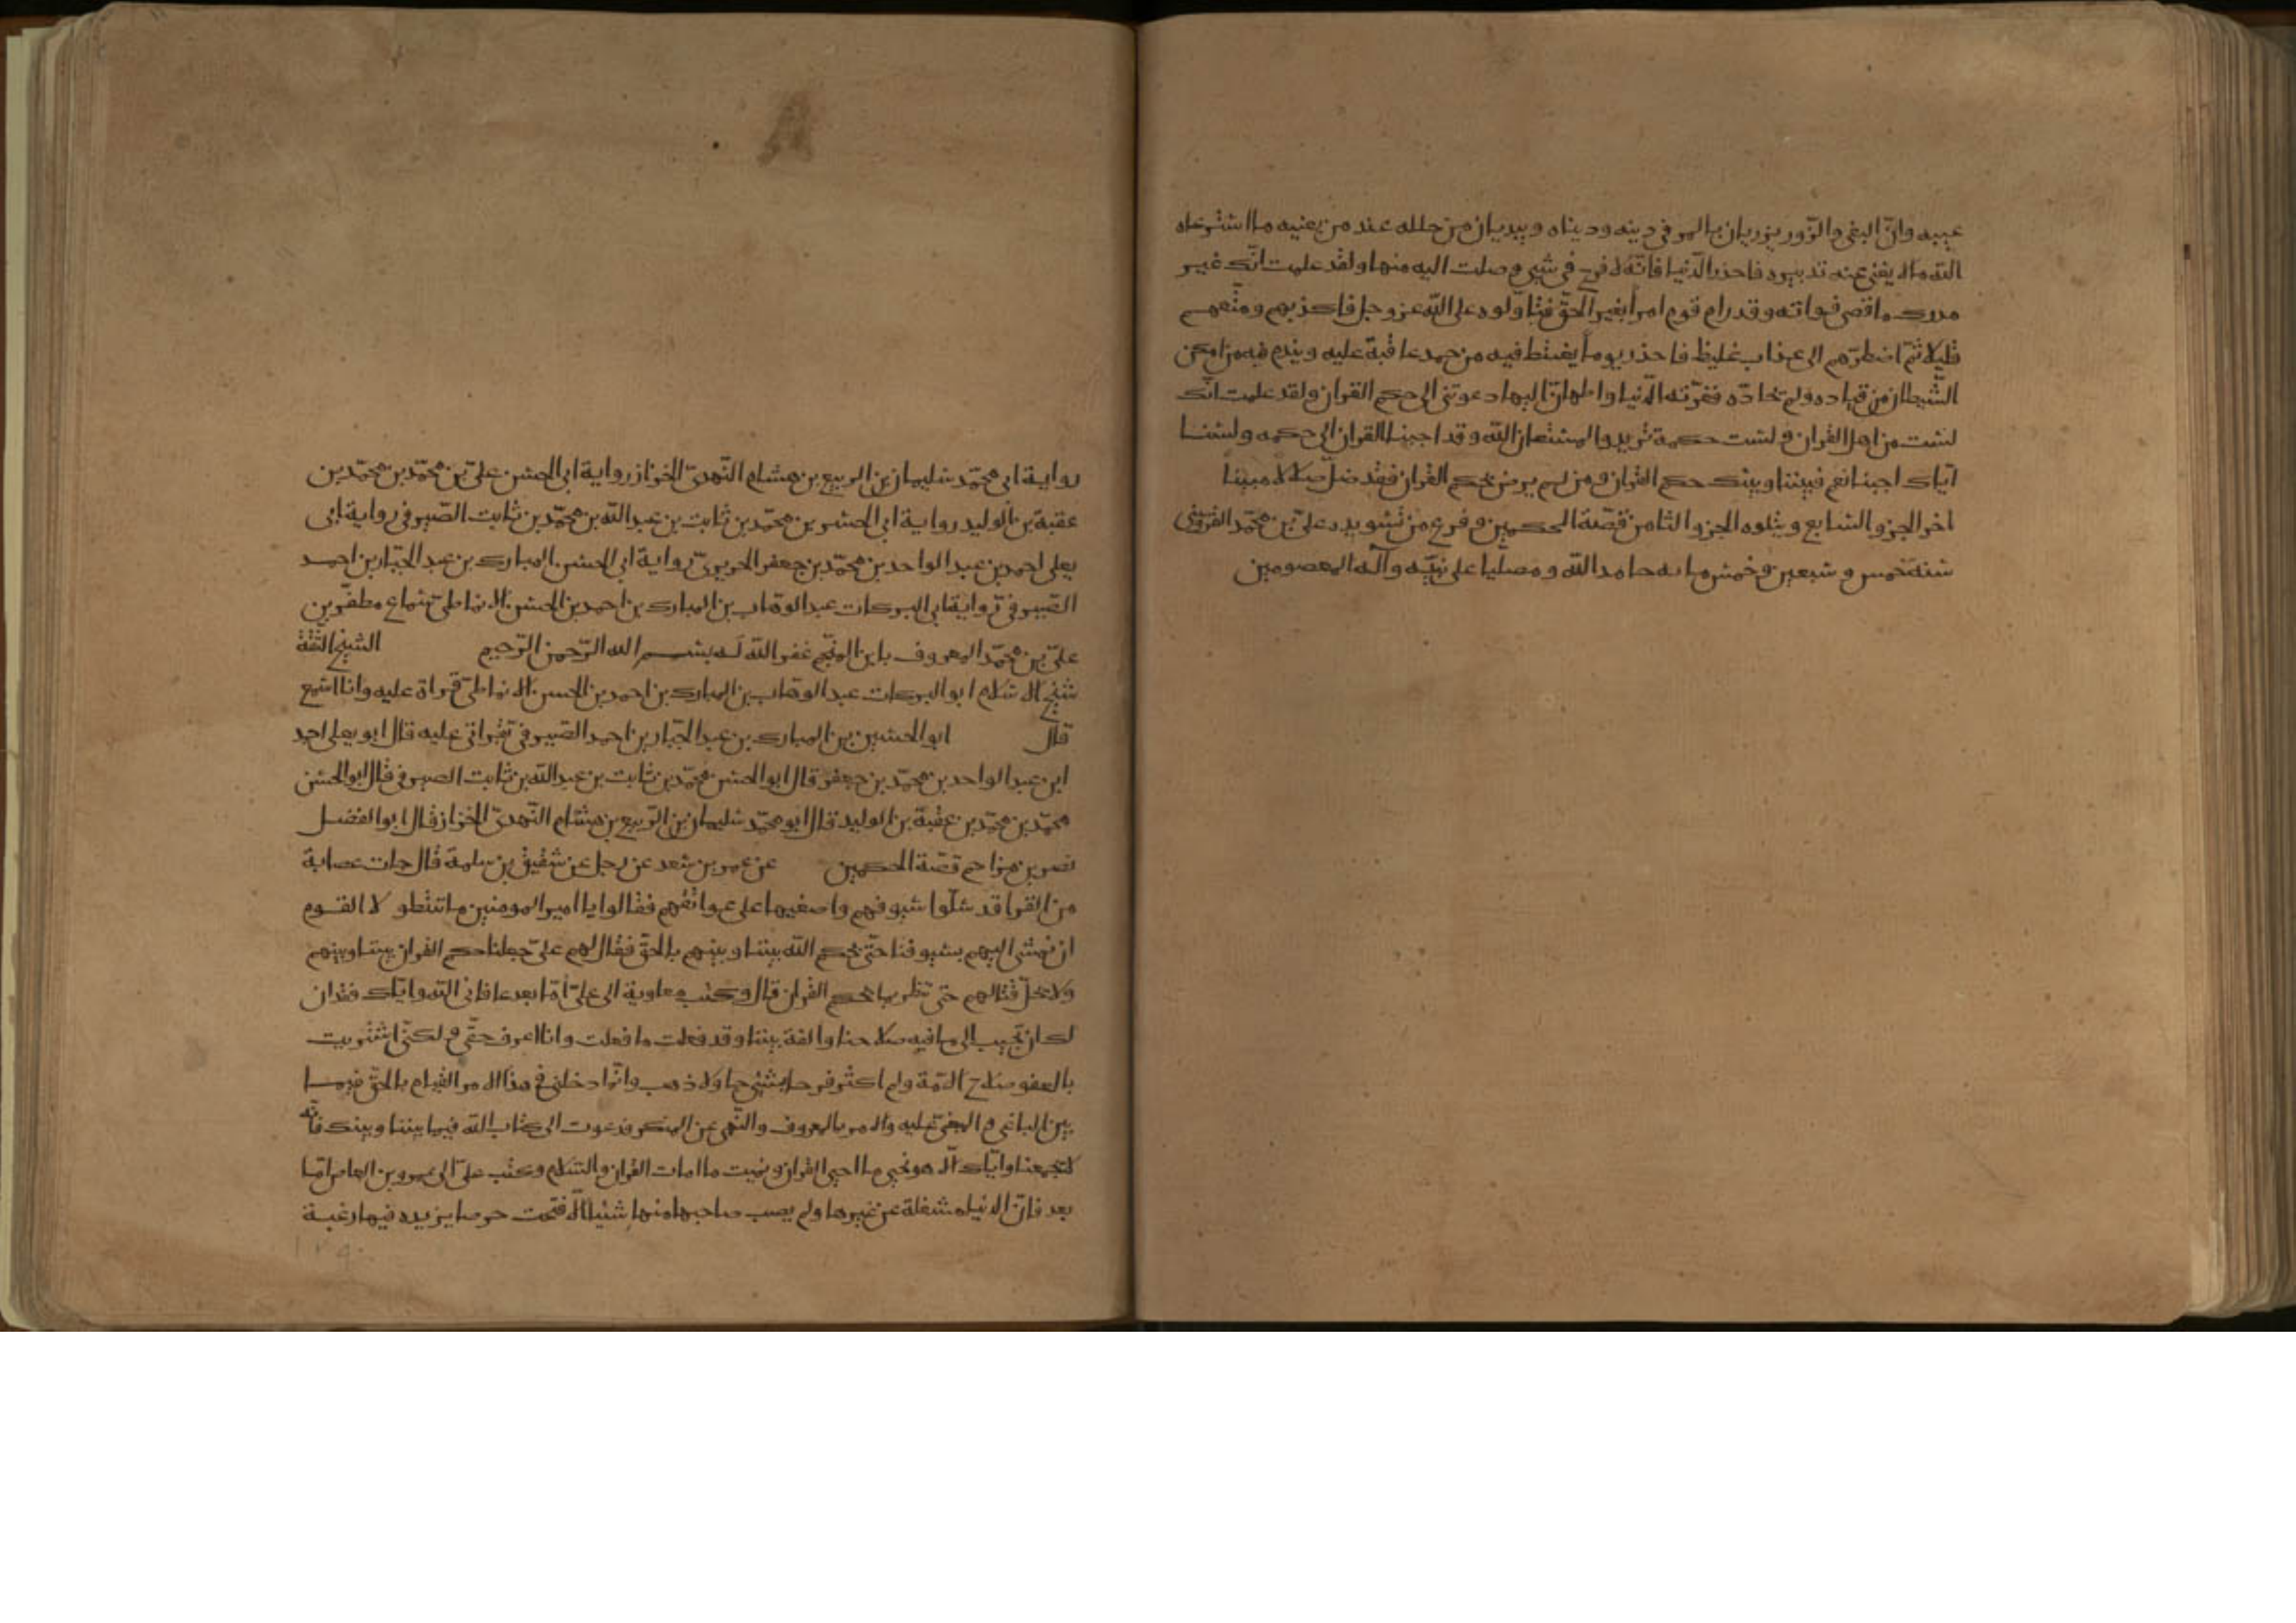 عيبه وان البغى والزور يزريان بالمر فى دينه ودنياه ويبديان من خلله عند من يعنيه ما استرعاه
الله ما لا يغنى عنه تدبيره فاحذر الدنيا فانه لا فرح فى شى وصلت اليه منها ولقد علمت انك غير
مدرك ما قضى فواته وقد رام قوم امرا بغير الحق فتاولوه على الله عز وجل فاكذبهم ومتعهم
قليلا ثم اضطرهم الى عذاب غليظ فاحذر يوما يغتبط فيه من حمد عاقبة عليه ويندم فيه من امكن
الشيطان من قياده ولم يحاده فغرته الدنيا واطمان اليها دعوتنى الى حكم القران ولقد علمت انك
لست من اهل القران ولست حكمه تريد والمستعان الله وقد اجبنا القران الى حكمه ولسنا
اياك اجبنا نعم فبيننا وبينك حكم القران ومن لم يرض بحكم القران فقد ضل ضلالا مبينا
اخر الجزو السابع ويتلوه الجزو الثامن قصة الحكمين وفرغ من تسويده على بن محمد القزوينى
سنة خمس وسبعين وخمس مايه حامدا لله ومصليا على نبيه وآله المعصومين
رواية ابى محمد سليمان بن الربيع بن هشام النهدى الخزاز رواية ابى الحسن على بن محمد بن محمد بن
عقبة بن الوليد رواية ابى الحسن بن محمد بن ثابت بن عبد الله بن محمد بن ثابت الصيرفى رواية ابى
يعلى احمد بن عبد الواحد بن محمد بن جعفر الحريرى رواية ابى الحسن المبارك بن عبد الجبار بن احمد
الصيرفى رواية ابى البركات عبد الوهاب بن المبارك بن احمد بن الحسن الانماطى سماع مظفر بن
على بن محمد المعروف بابن المنجم غفر الله له بسم الله الرحمن الرحيم الشيخ الثقة
شيخ الاسلام ابو البركات عبد الوهاب بن المبارك بن احمد بن الحسن الانماطى قراة عليه وانا اسمع
قال ابو الحسين بن المبارك بن عبد الجبار بن احمد الصيرفى بقراتى عليه قال ابو يعلى احمد
ابن عبد الواحد بن محمد بن جعفر قال ابو الحسن محمد بن ثابت بن عبد الله بن ثابت الصيرفى قال ابو الحسن
محمد بن محمد بن عقبة بن الوليد قال ابو محمد سليمان بن الربيع بن هشام النهدى الخزاز قال ابو الفضل
نصر بن مزاحم قصة الحكمين عن عمر بن سعد عن رجل عن شقيق بن سلمة قال جات عصابة
من القرا قد سلوا سيوفهم واضعيها على عواتقهم فقالوا يا امير المومنين ما تنتظر لا القوم
ان نمشى اليهم بسيوفنا حتى يحكم الله بيننا وبينهم بالحق فقال لهم على جعلنا حكم القران بيننا وبينهم
ولا يحل قتالهم حتى ننظر بما يحكم القران قال وكتب معاوية الى على اما بعد عافانا الله واياك فقد ان
لك ان تجيب الى ما فيه صلاحنا والفة بيننا وقد فعلت ما فعلت وانا اعرف حقى ولكنى اشتريت
بالعفو صلاح الامة ولم اكثر فرحا بشى جا ولا ذهب وانما ادخلنى فى هذا الامر القيام بالحق فيما
بين الباغى والمبغى عليه والامر بالمعروف والنهى عن المنكر فدعوت الى كتاب الله فيما بيننا وبينك فانه
لا يجمعنا واياك الا هو نحيى ما احيى القران ونميت ما امات القران والسلام وكتب على الى عمرو بن العاص اما
بعد فان الدنيا مشغلة عن غيرها ولم يصب صاحبها منها شيئا الا فتحت حرصا يزيده فيها رغبة